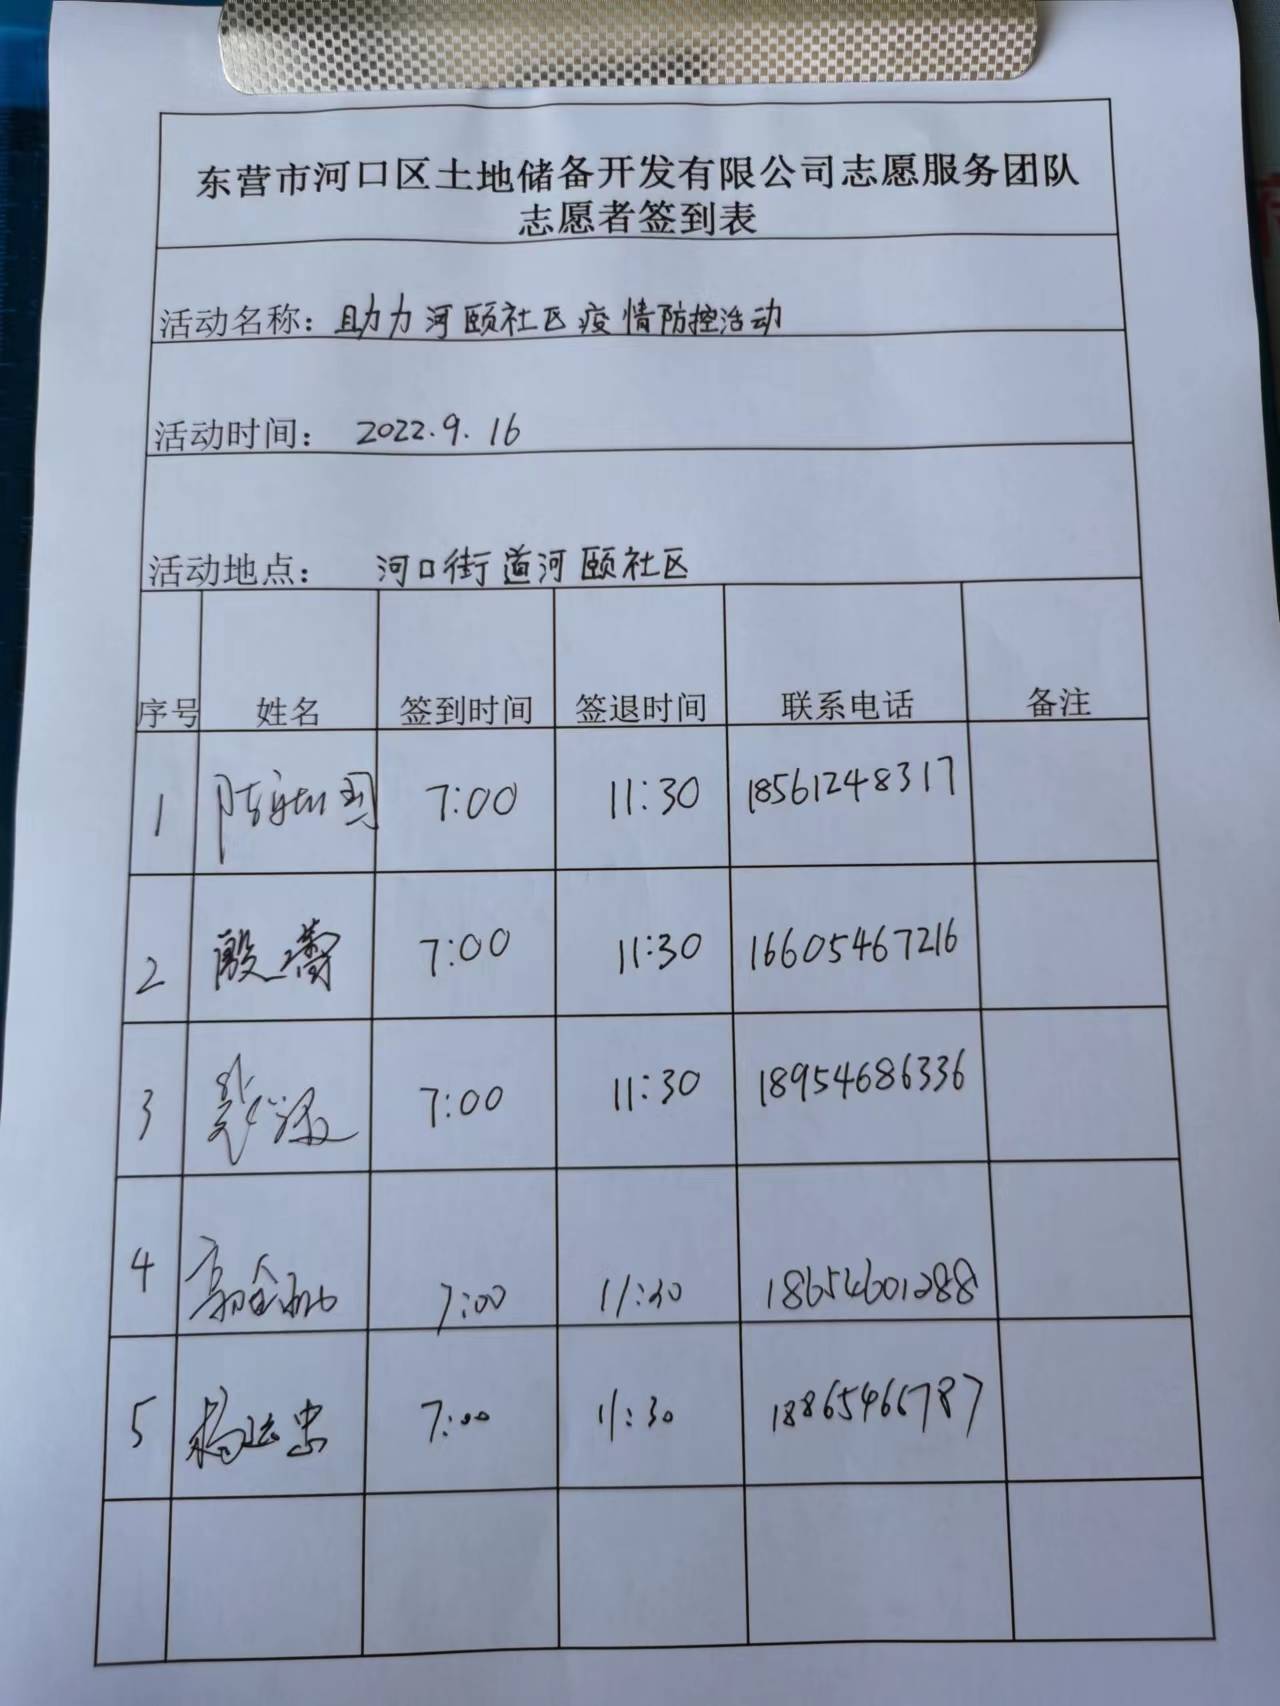 东营市河口区土地储备开发有限公司志愿服务团队
志愿者签到表
活动名称：助力河颐社区疫情防控活动
活动时间： 2022.9.16
活动地点： 河口街道河颐社区
序号 姓名 签到时间 签退时间 联系电话 备注
1 7:00 11:30 18561248317
2 殷蕾 7:00 11:30 16605467216
3 7:00 11:30 18954686336
4 7:00 11:30 18654601288
5 杨运忠 7:00 11:30 18865466787